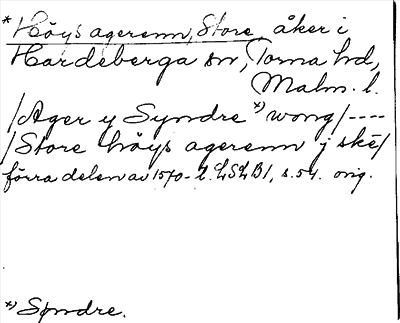 * Höys agerenn, Store, åker i
Hardeberga sn, Torna hd,
Malm. l.
/Ager y Syndre *) wong/ ----
/Store höys agerenn j ske/
förra delen av 1570-t. LSLB1, s. 54. orig.
*) Syndre.